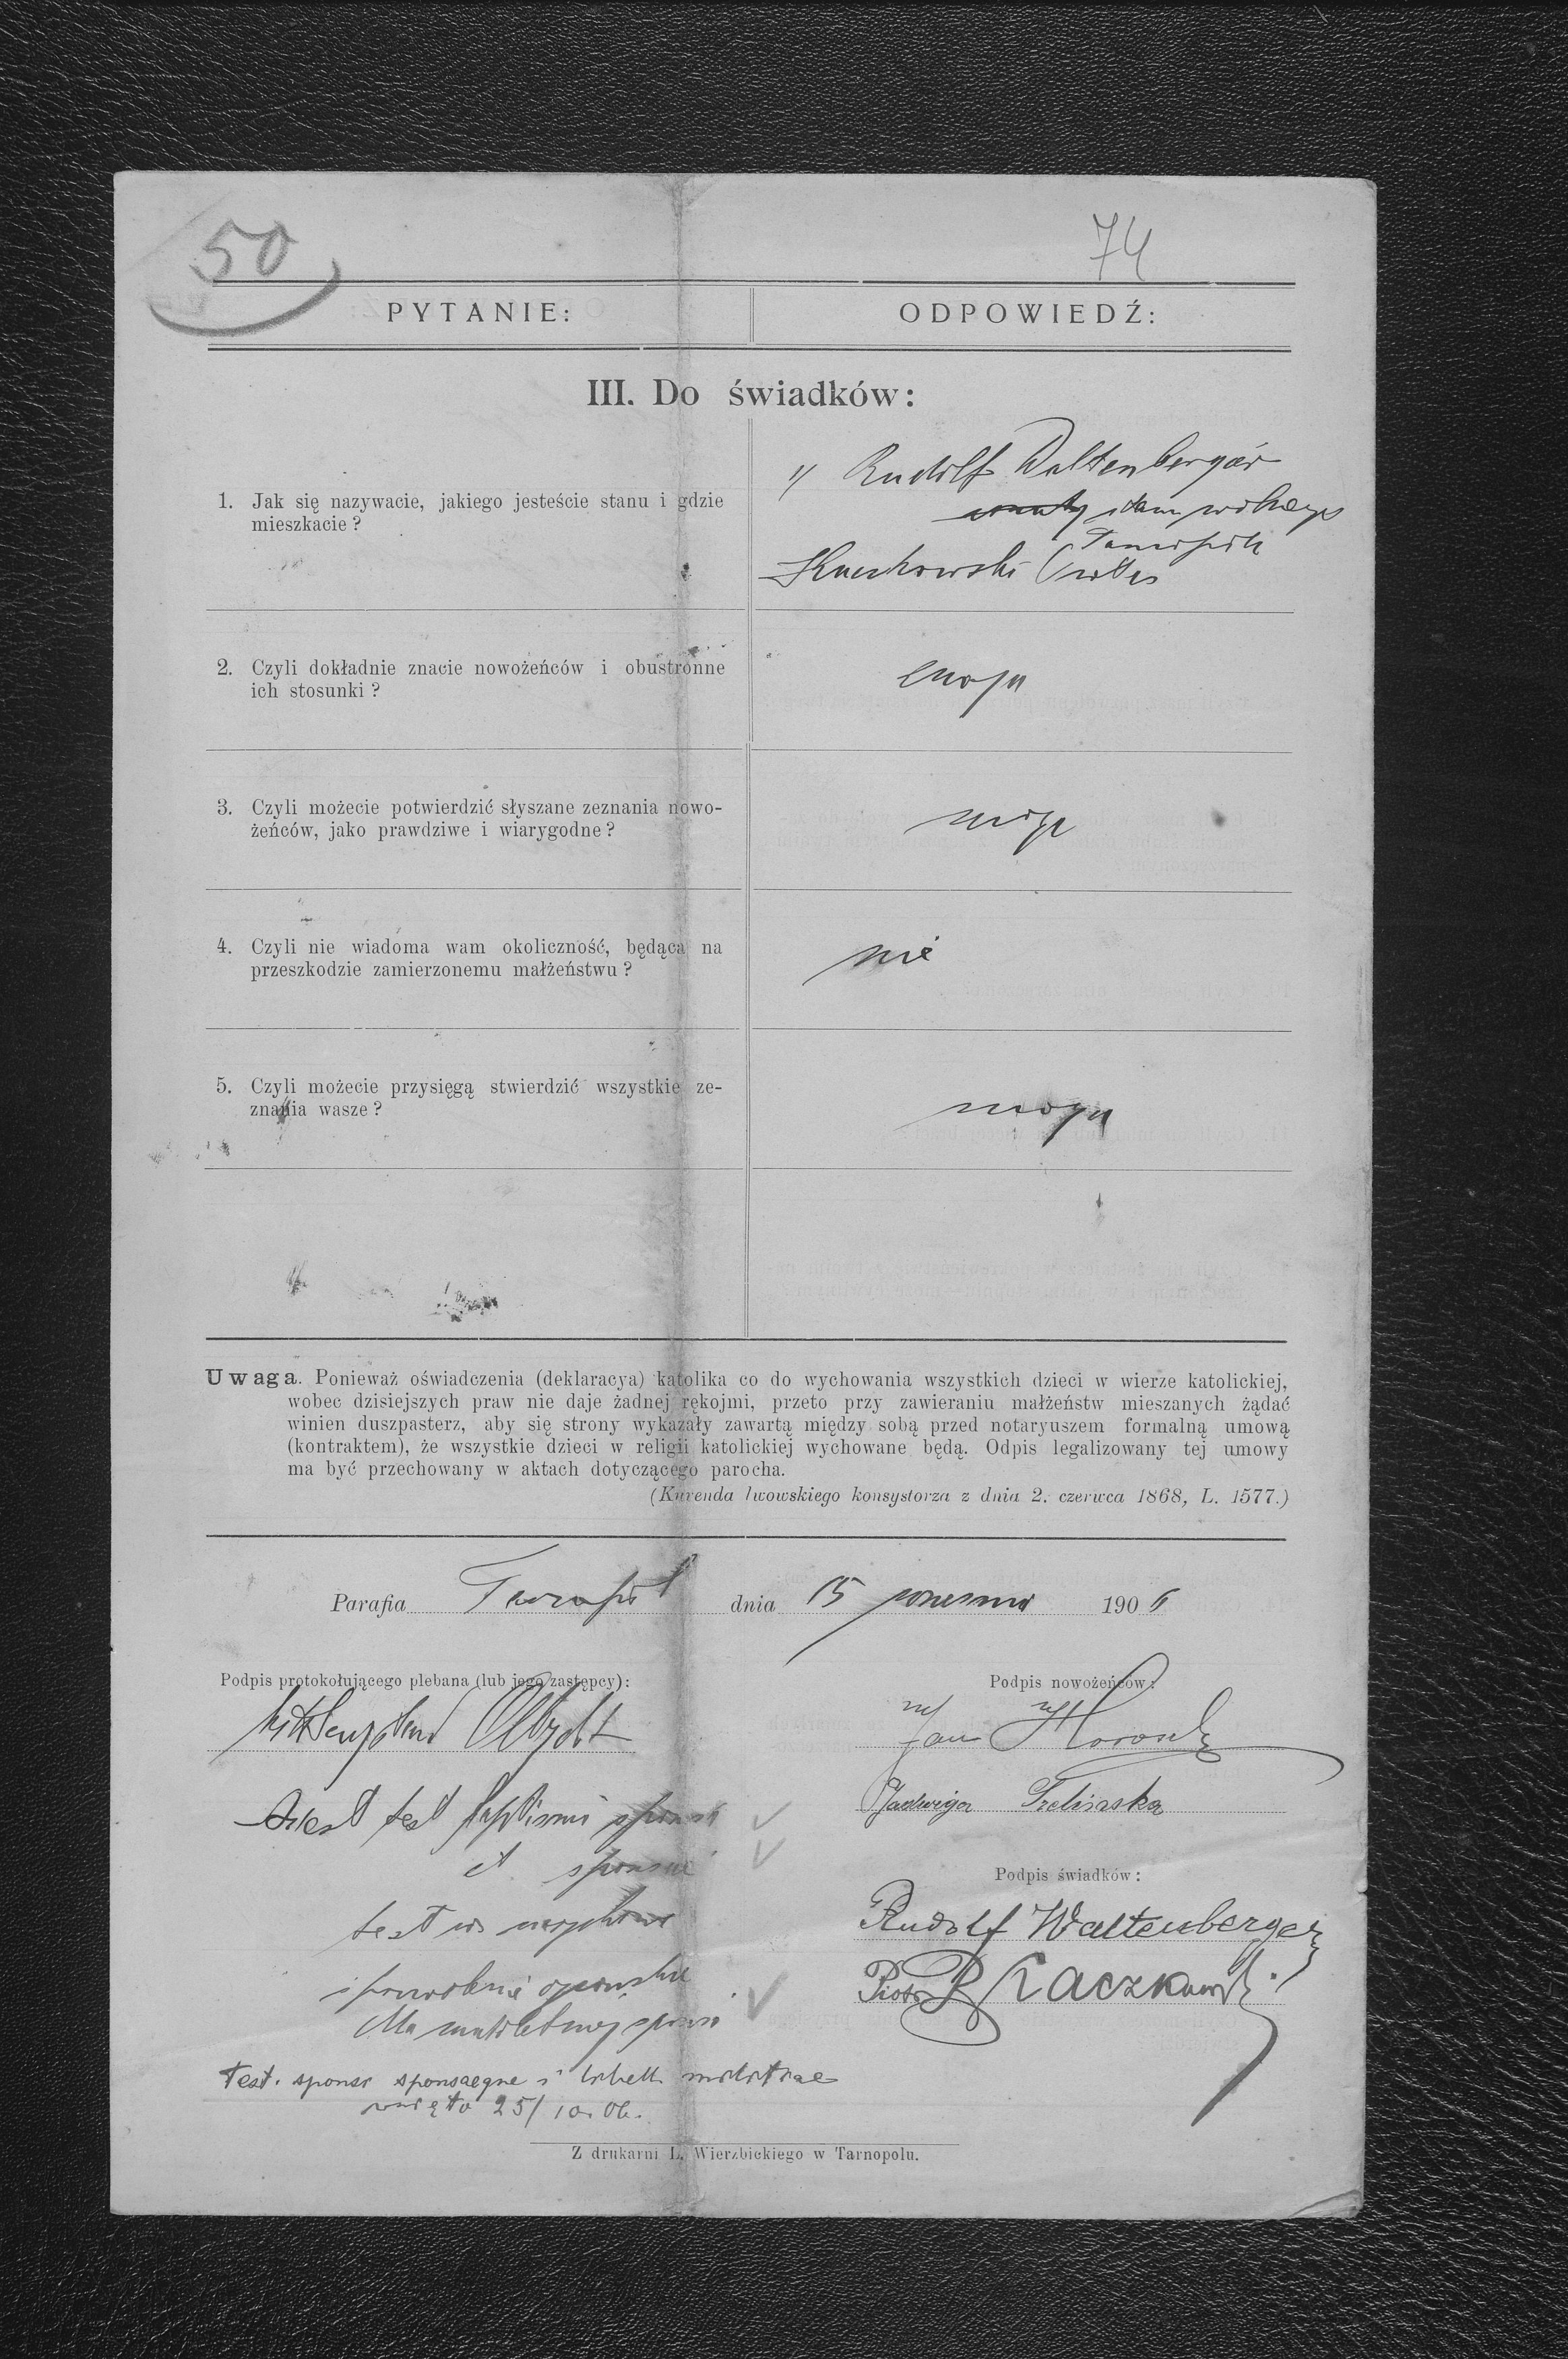 50
74
PYTANIE:
ODPOWIEDŹ:
III. Do świadków:
1. Jak się nazywacie, jakiego jesteście stanu i gdzie
mieszkacie?
Rudolf Waltenberger
stanu wolnego
Tarnopol
2. Czyli dokładnie znacie nowożeńców i obustronne
ich stosunki?
znają
3. Czyli możecie potwierdzić słyszane zeznania nowo-
żeńców, jako prawdziwe i wiarygodne?
4. Czyli nie wiadoma wam okoliczność, będąca na
przeszkodzie zamierzonemu małżeństwu?
nie
5. Czyli możecie przysięgą stwierdzić wszystkie ze-
znania wasze?
mogą
Uwaga. Ponieważ oświadczenia (deklaracya) katolika co do wychowania wszystkich dzieci w wierze katolickiej,
wobec dzisiejszych praw nie daje żadnej rękojmi, przeto przy zawieraniu małżeństw mieszanych żądać
winien duszpasterz, aby się strony wykazały zawartą między sobą przed notaryuszem formalną umową
(kontraktem), że wszystkie dzieci w religii katolickiej wychowane będą. Odpis legalizowany tej umowy
ma być przechowany w aktach dotyczącego parocha.
(Kurenda lwowskiego konsystorza z dnia 2. czerwca 1868, L. 1577.)
Parafia Tarnopol dnia 15 września 1906
Podpis protokołującego plebana (lub jego zastępcy):
Podpis nowożeńców:
Jan
Jadwiga
test baptismi sponsi
et sponsae
Podpis świadków:
Rudolf Waltenberger
Piotr
Test. sponsi sponsaeque i libell. militiae
wzięto 25/10. 06.
Z drukarni L. Wierzbickiego w Tarnopolu.